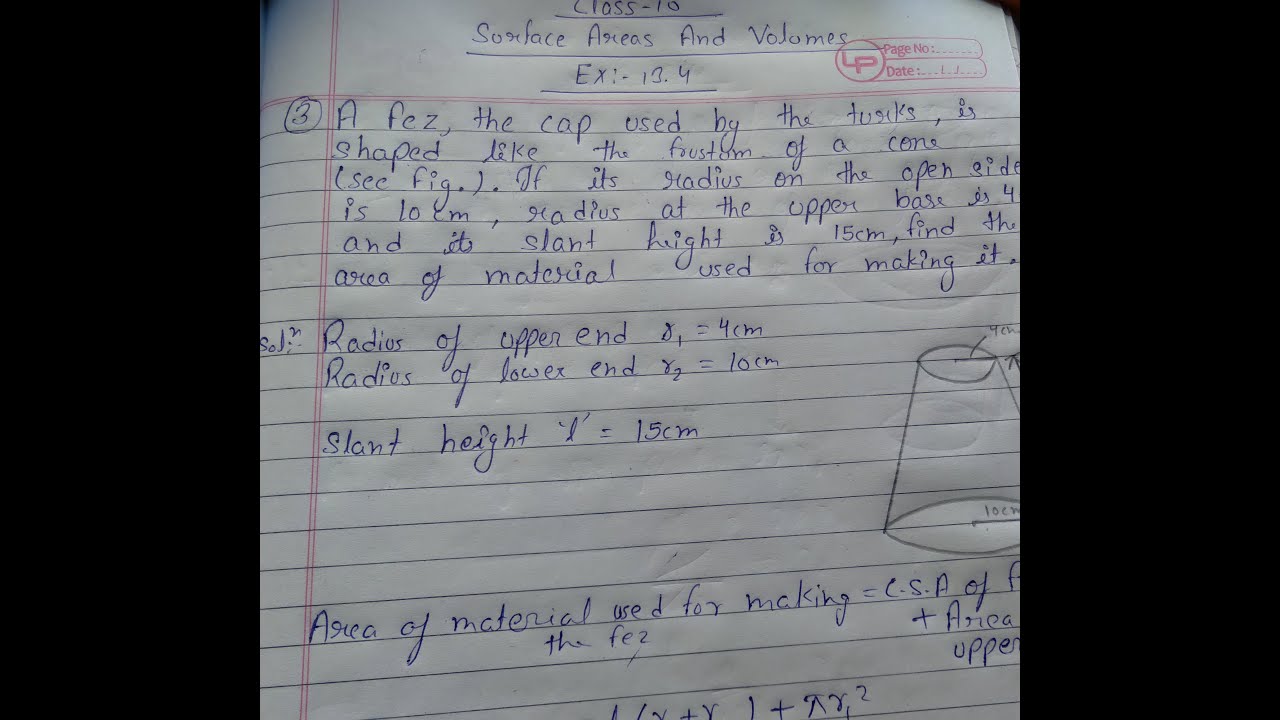 Class-10
Surface Areas And Volumes
LP Page No:.......
Date:...../...../.....
Ex:- 13.4
③ A fez, the cap used by the turks, is
shaped like the frustum of a cone
(see fig.). If its radius on the open side
is 10cm, radius at the upper base is 4
and its slant height is 15cm, find the
area of material used for making it.
Solⁿ: Radius of upper end r₁ = 4cm
Radius of lower end r₂ = 10cm
Slant height 'l' = 15cm
4cm
10cm
Area of material used for making = C.S.A of
the fez + Area
upper
(r + r ) + πr₁²